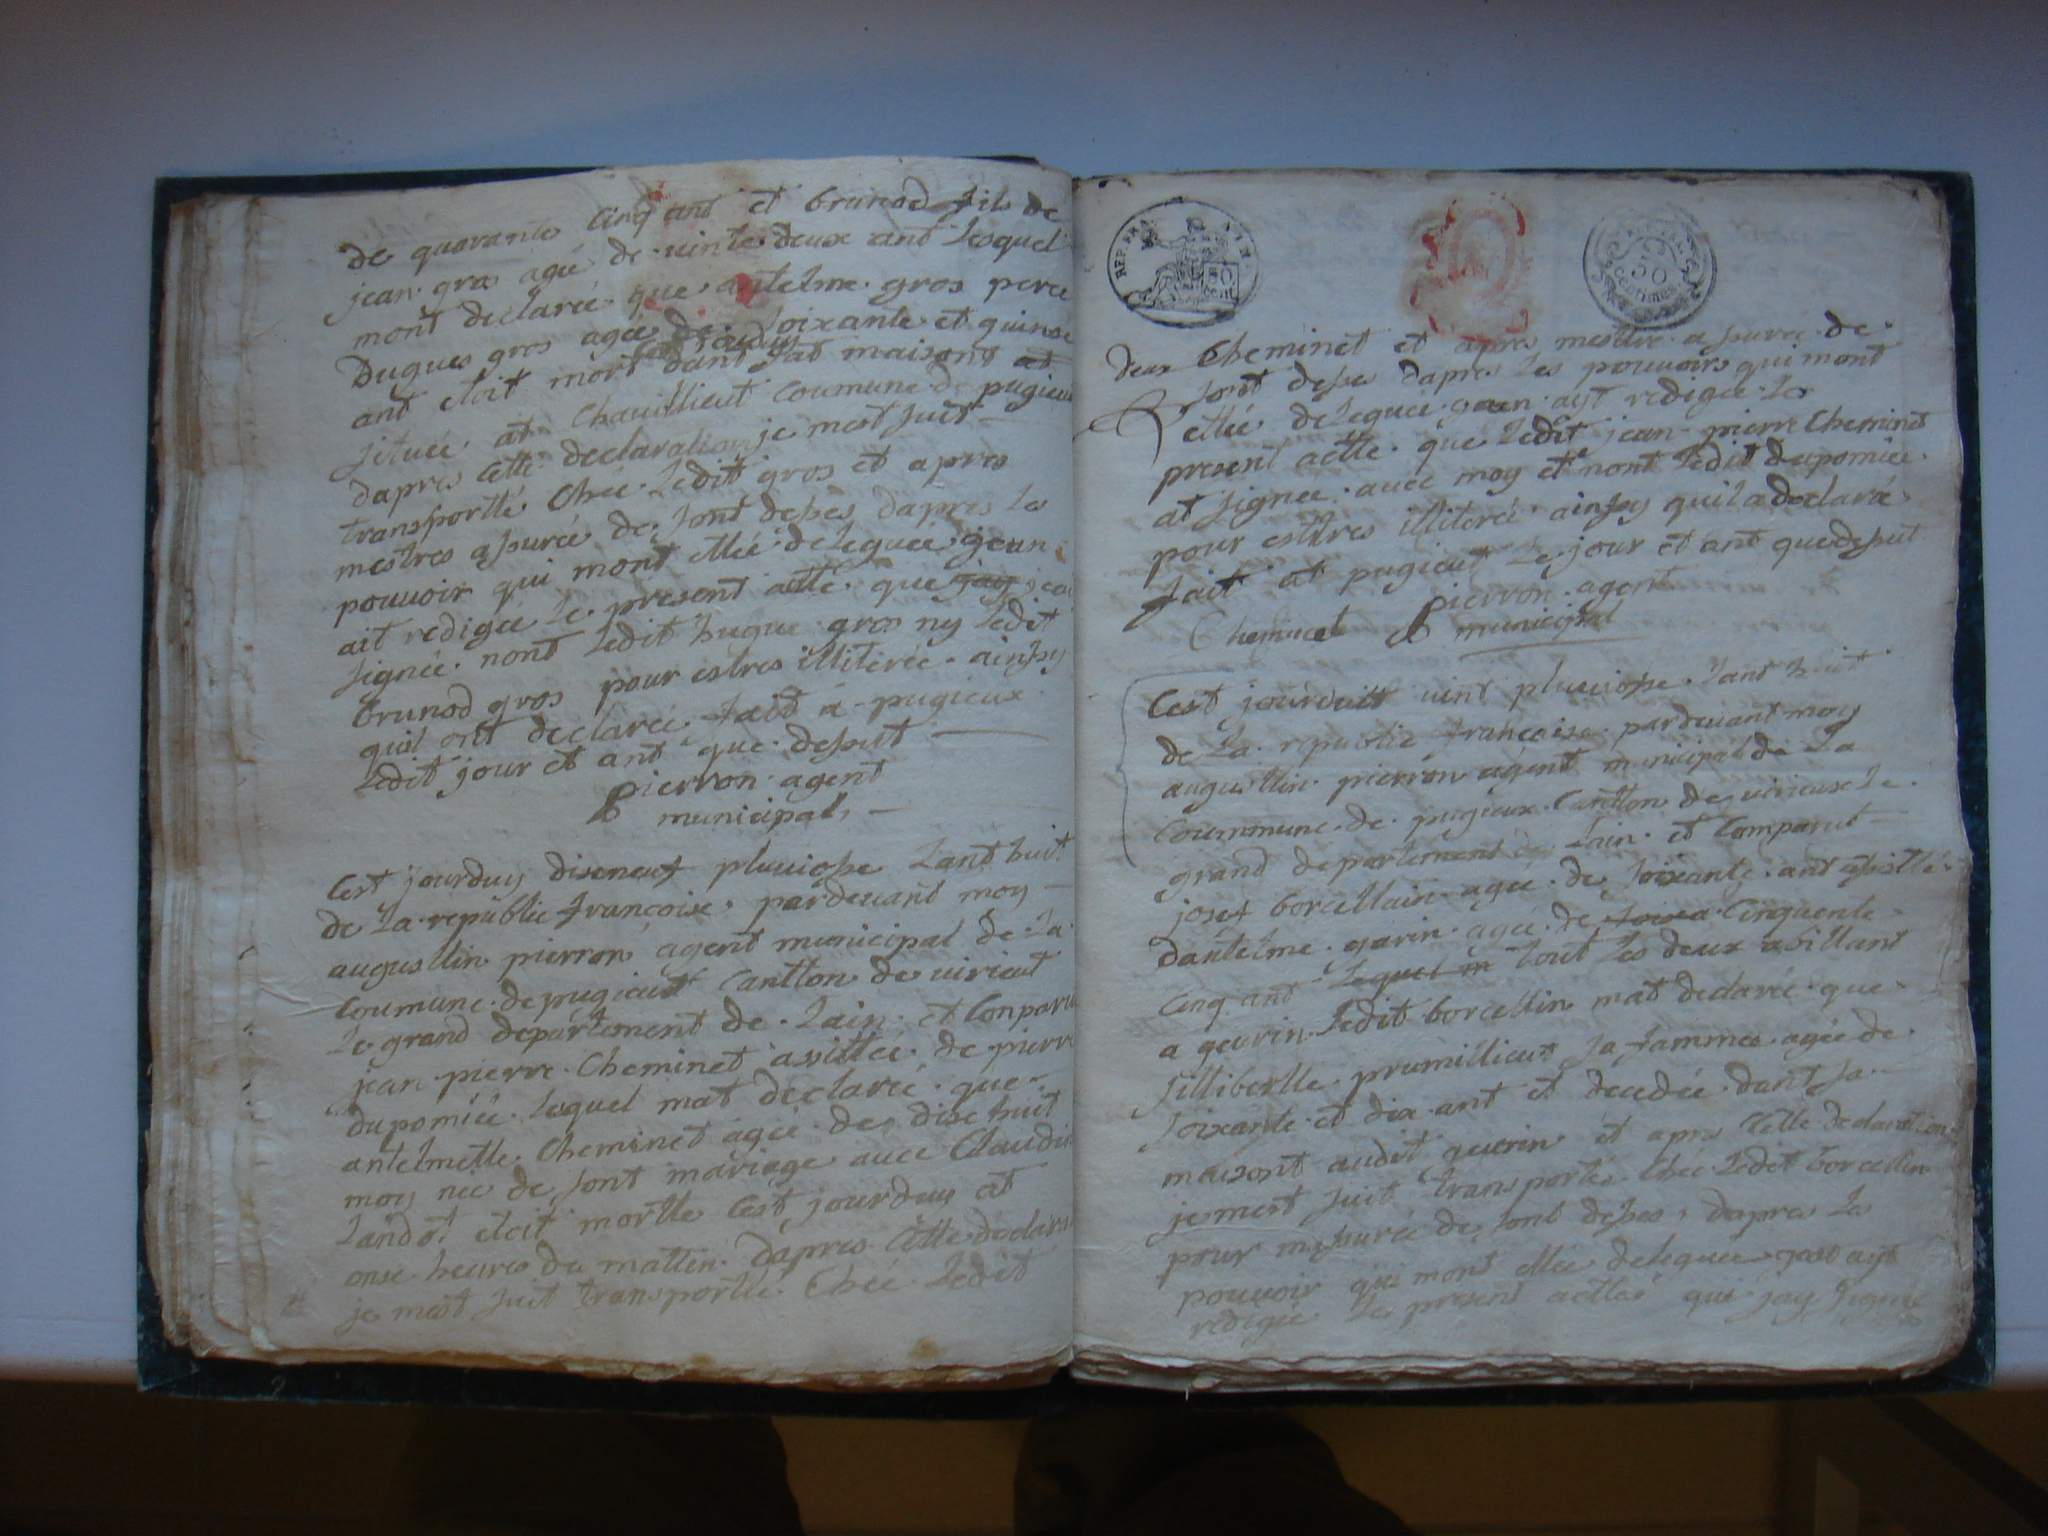 de quarante Cinq ant et brunod fils de
jean gros ageé de vinte deux ant Lesquel
mont declareé que antelme gros pere
Dugues gros ageé de Soixante et quinse
ant etoit mort dant Sat maisont
Situeé at Chavillieut Coumune de pugieux
dapres Cette declaration je mest suit
transportté Cheé Ledit gros et apres
mestres asureé de Sont desès dapres Les
pouvoir qui mont etteé delegueé
ait redigeé Le present atte que
Signeé nont Ledit hugue gros ny Ledit
brunod gros pour estres illitereé ainsy
quil ont declareé fait a pugieux
Ledit jour et ant que desut
pierron agent
municipal
Cest jourduy diseneuf pluviose Lant huit
de La republie françoise pardevant moy
augusttin pierron agent municipal de La
Coumune de pugieut Cantton de virieut
Le grand departement de Lain et Conparu
jean pierre Cheminet asisttee de pierre
dupomieé Lequel mat declareé que
antelmette Cheminet ageé de dise huit
moy neé de Sont mariage avec Claudi
Landot etoit mortte Cest jourduy at
onse heures du mattin dapres Cette declara
je mest Suit transportté Cheé Ledit
REP. FRA. 50 cent
50 Centimes
deux Cheminet et apres mesttre asureé de
Sont deses dapres Les pouvoirs qui mont
etteé delegueé ayt redigeé Le
present actte que Ledit jean pierre Cheminet
at Signeé avec moy et nont Ledit dupomieé
pour esttres illitereé ainsy quil a declareé
fait at pugieut Le jour et ant que desut
Cheminet pierron agent
municipal
Cest jourduit vint pluviose Lant huit
de La republie françoise pardevant moy
augusttin pierron agent municipal de La
Coummune de pugieux Cantton de virieux Le
grand departement de Lain et Comparut
josef borcellain ageé de Soixante ant asistté
dantelme gavin ageé de Cinquente
Cinq ant tout Les deux abittant
a gevrin Ledit borcellin mat declareé que
Sillibertte prumillieux Sa fammee ageé de
Soixante et dix ant et decedeé dant Sa
maisont audit gevrin et apres Cette declaration
je mest Suit transportté Cheé Ledit borcellin
pour masureé de Sont deses dapres Le
pouvoir qui mont etteé delegueé ayt
redigeé Le present actte qui jay Signeé